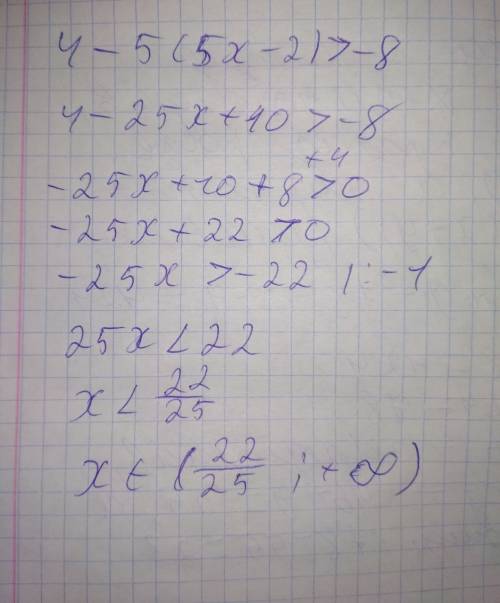 4 - 5 (5x - 2) > -8
4 - 25x + 10 > -8
-25x + 10 + 8 +4 > 0
-25x + 22 > 0
-25x > -22 | : -1
25x < 22
x < 22/25
x ∈ (22/25 ; +∞)